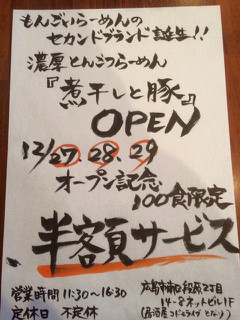 もんごいらーめんの
セカンドブランド誕生!!
濃厚とんこつらーめん
『煮干しと豚』
OPEN
12/27.28.29
オープン記念
100食限定
半額サービス
営業時間 11:30〜16:30
定休日 不定休
広島市南区段原2丁目
14-8ネットビル1F
(居酒屋 となり)